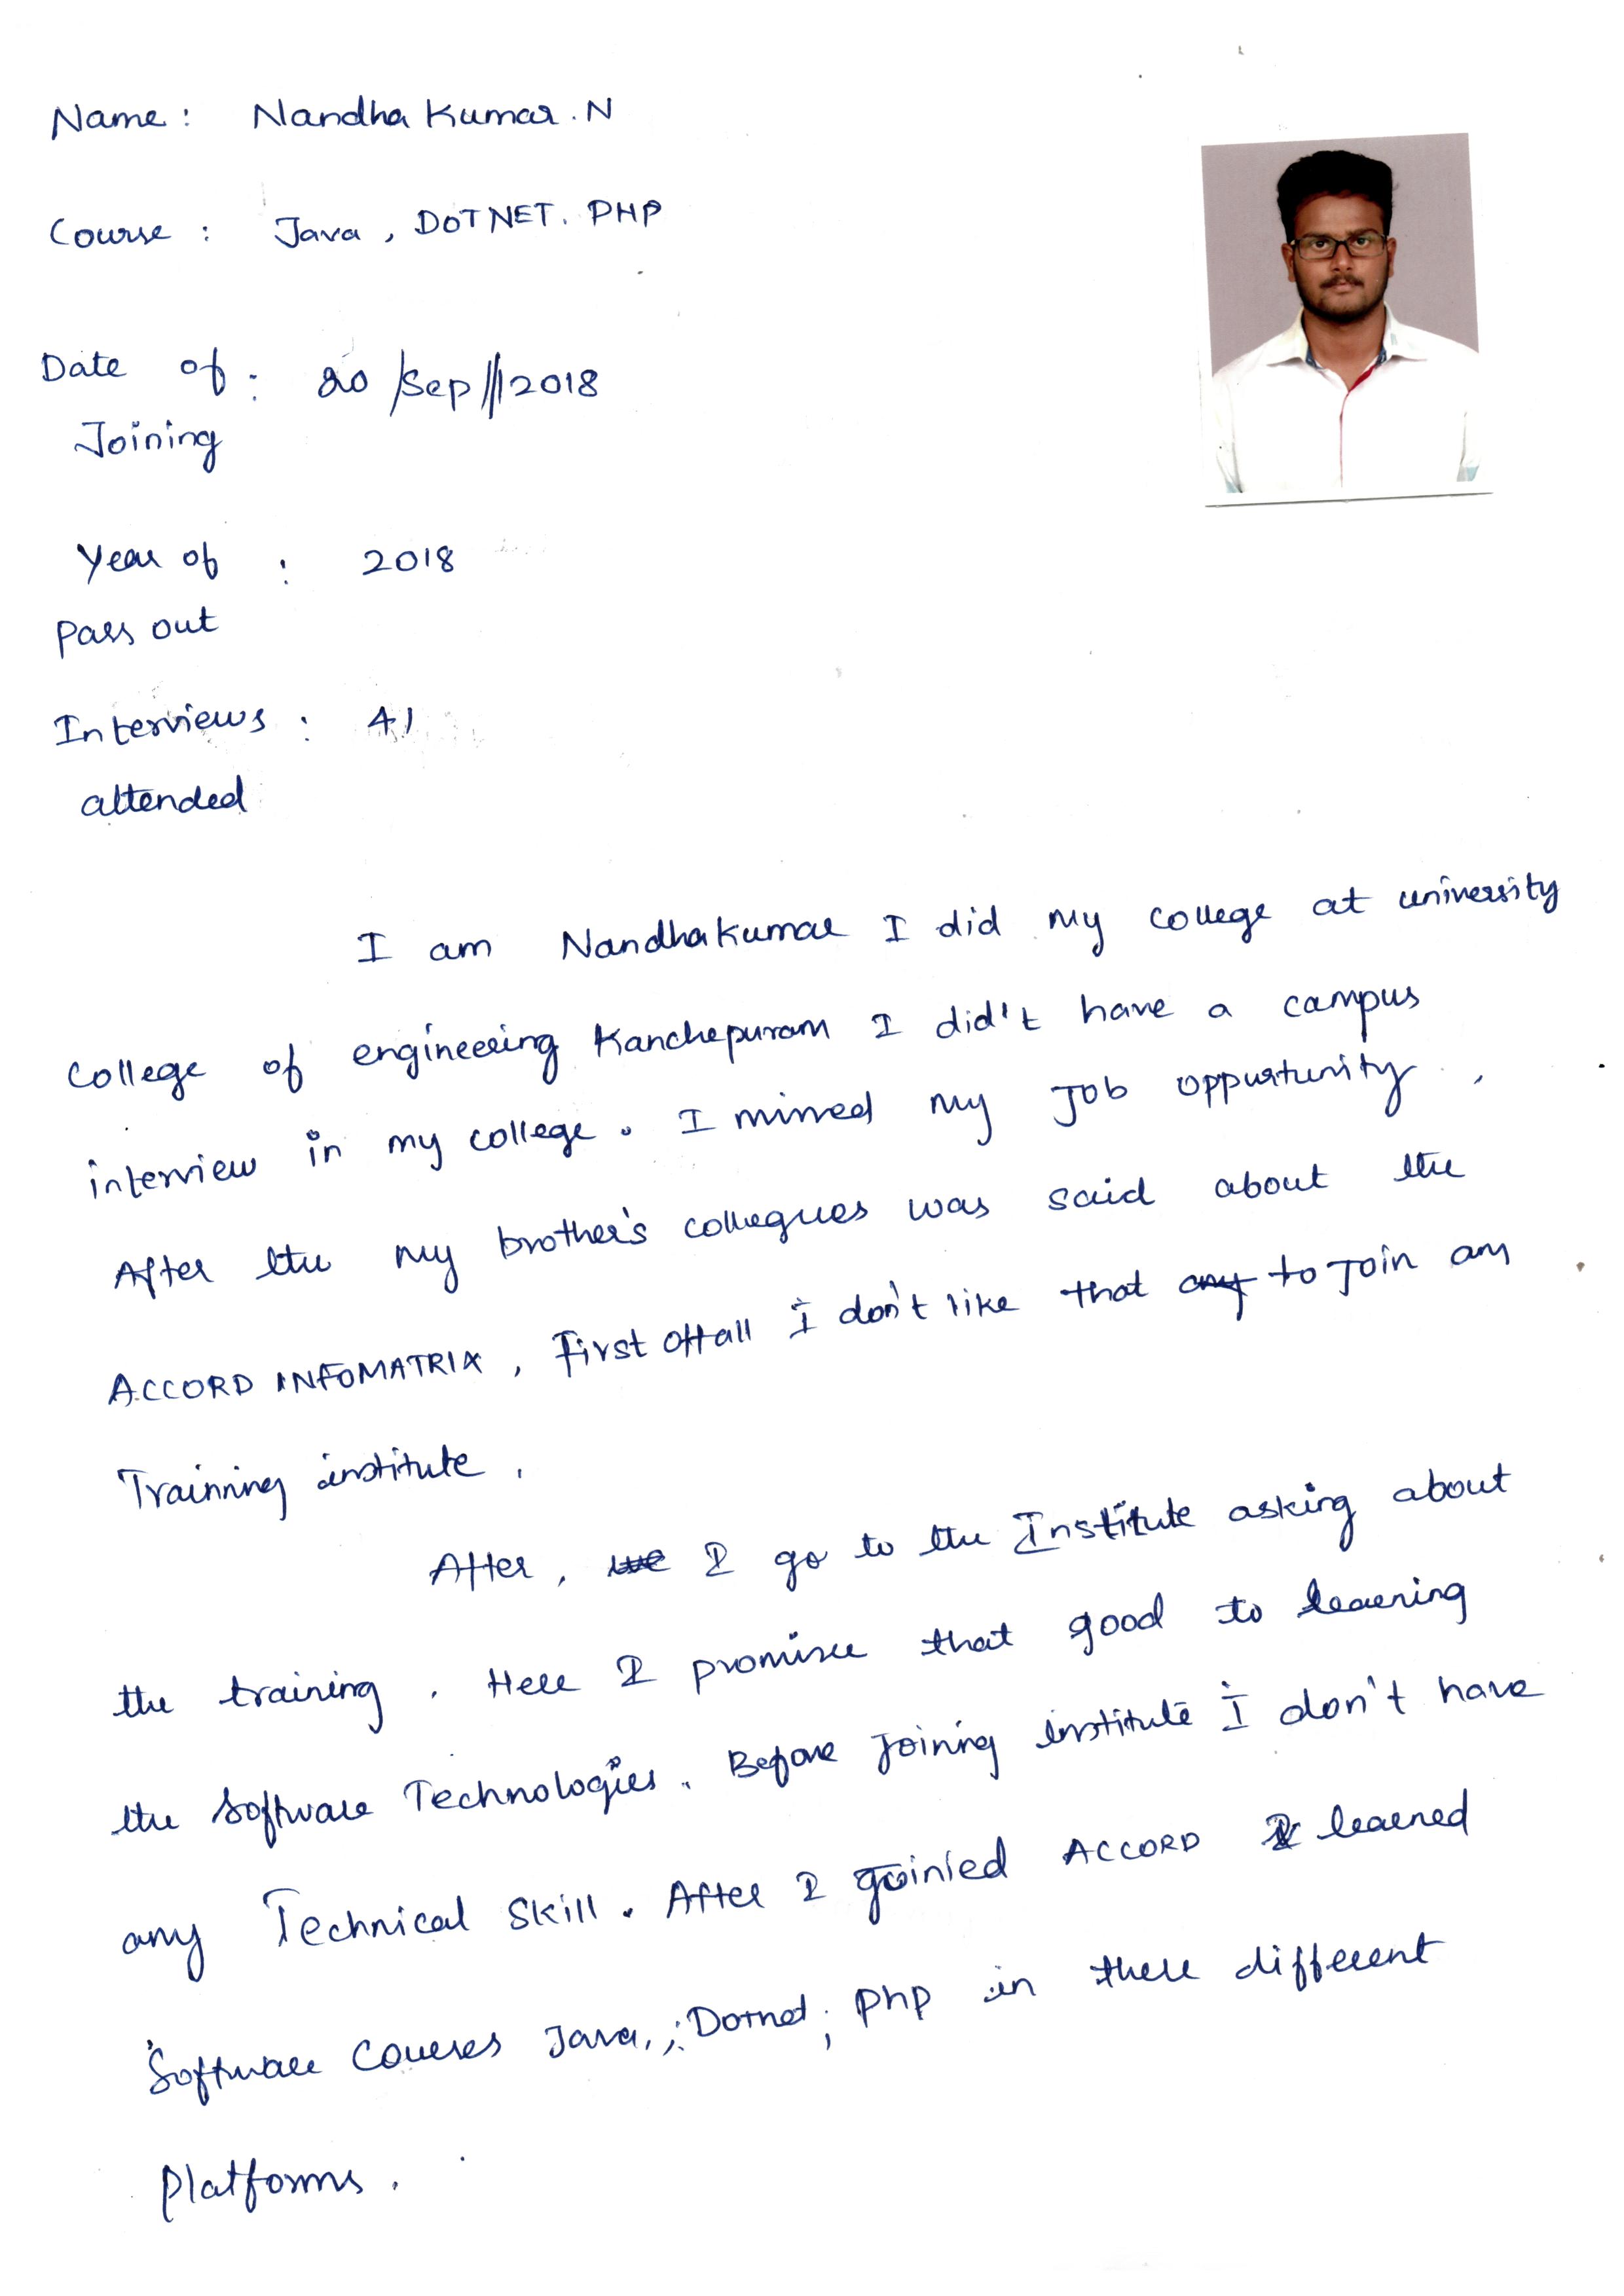 Name : Nandha Kumar. N
Course : Java, DOTNET. PHP
Date of : 20/Sep//2018
Joining
Year of : 2018
Pass out
Interviews : 41
attended
I am Nandhakumar I did my college at university
College of engineering Kanchepuram I did't have a campus
interview in my college. I missed my Job oppurtunity.
After the my brother's collegues was said about the
ACCORD INFOMATRIX, First offall I don't like that any to Join any
Trainning institute.
After, we I go to the Institute asking about
the training. Here I promise that good to learning
the Software Technologies. Before Joining institute I don't have
any Technical Skill. After I joinied ACCORD I learned
Software Courses Java,; Dotnet; Php in there different
Platforms.